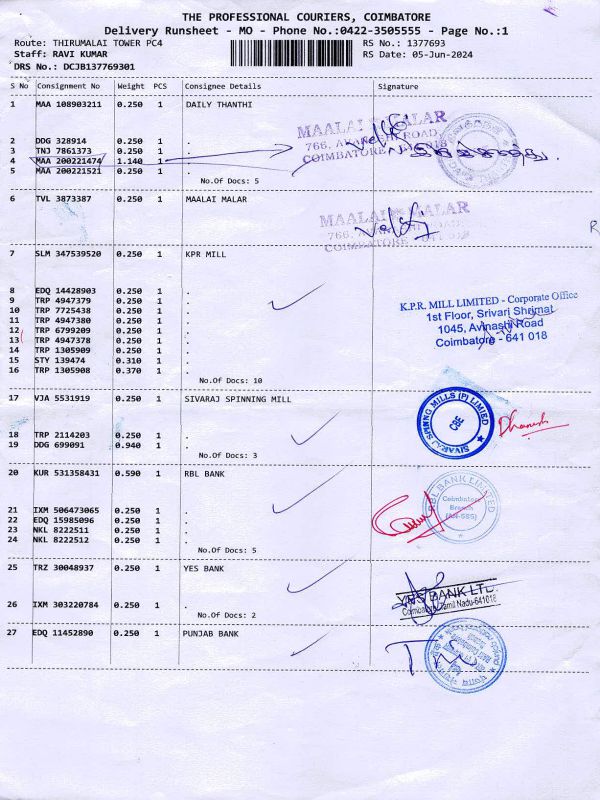 THE PROFESSIONAL COURIERS, COIMBATORE
Delivery Runsheet - MO - Phone No.:0422-3505555 - Page No.:1
Route: THIRUMALAI TOWER PC4 RS No.: 1377693
Staff: RAVI KUMAR RS Date: 05-Jun-2024
DRS No.: DCJB137769301
S No Consignment No Weight PCS Consignee Details Signature
1 MAA 108903211 0.250 1 DAILY THANTHI
MAALAI MALAR
766, AVINASHI ROAD,
COIMBATORE - 641 018
2 DDG 328914 0.250 1 .
3 TNJ 7861373 0.250 1 .
4 MAA 200221474 1.140 1 .
5 MAA 200221521 0.250 1 .
No.Of Docs: 5
6 TVL 3873387 0.250 1 MAALAI MALAR
MAALAI MALAR
7 SLM 347539520 0.250 1 KPR MILL
8 EDQ 14428903 0.250 1 .
9 TRP 4947379 0.250 1 .
10 TRP 7725438 0.250 1 .
11 TRP 4947380 0.250 1 .
12 TRP 6799209 0.250 1 .
13 TRP 4947378 0.250 1 .
14 TRP 1305909 0.250 1 .
15 STY 139474 0.310 1 .
16 TRP 1305908 0.370 1 .
No.Of Docs: 10
K.P.R. MILL LIMITED - Corporate Office
1st Floor, Srivari Shrimat
1045, Avinashi Road
Coimbatore - 641 018
17 VJA 5531919 0.250 1 SIVARAJ SPINNING MILL
18 TRP 2114203 0.250 1 .
19 DDG 699091 0.940 1 .
No.Of Docs: 3
SIVARAJ SPINNING MILLS (P) LIMITED
CBE
Dhanesh
20 KUR 531358431 0.590 1 RBL BANK
21 IXM 506473065 0.250 1 .
22 EDQ 15985096 0.250 1 .
23 NKL 8222511 0.250 1 .
24 NKL 8222512 0.250 1 .
No.Of Docs: 5
RBL BANK LIMITED
Coimbatore
Branch
25 TRZ 30048937 0.250 1 YES BANK
26 IXM 303220784 0.250 1 .
No.Of Docs: 2
YES BANK LTD.
Coimbatore, Tamil Nadu-641018
27 EDQ 11452890 0.250 1 PUNJAB BANK